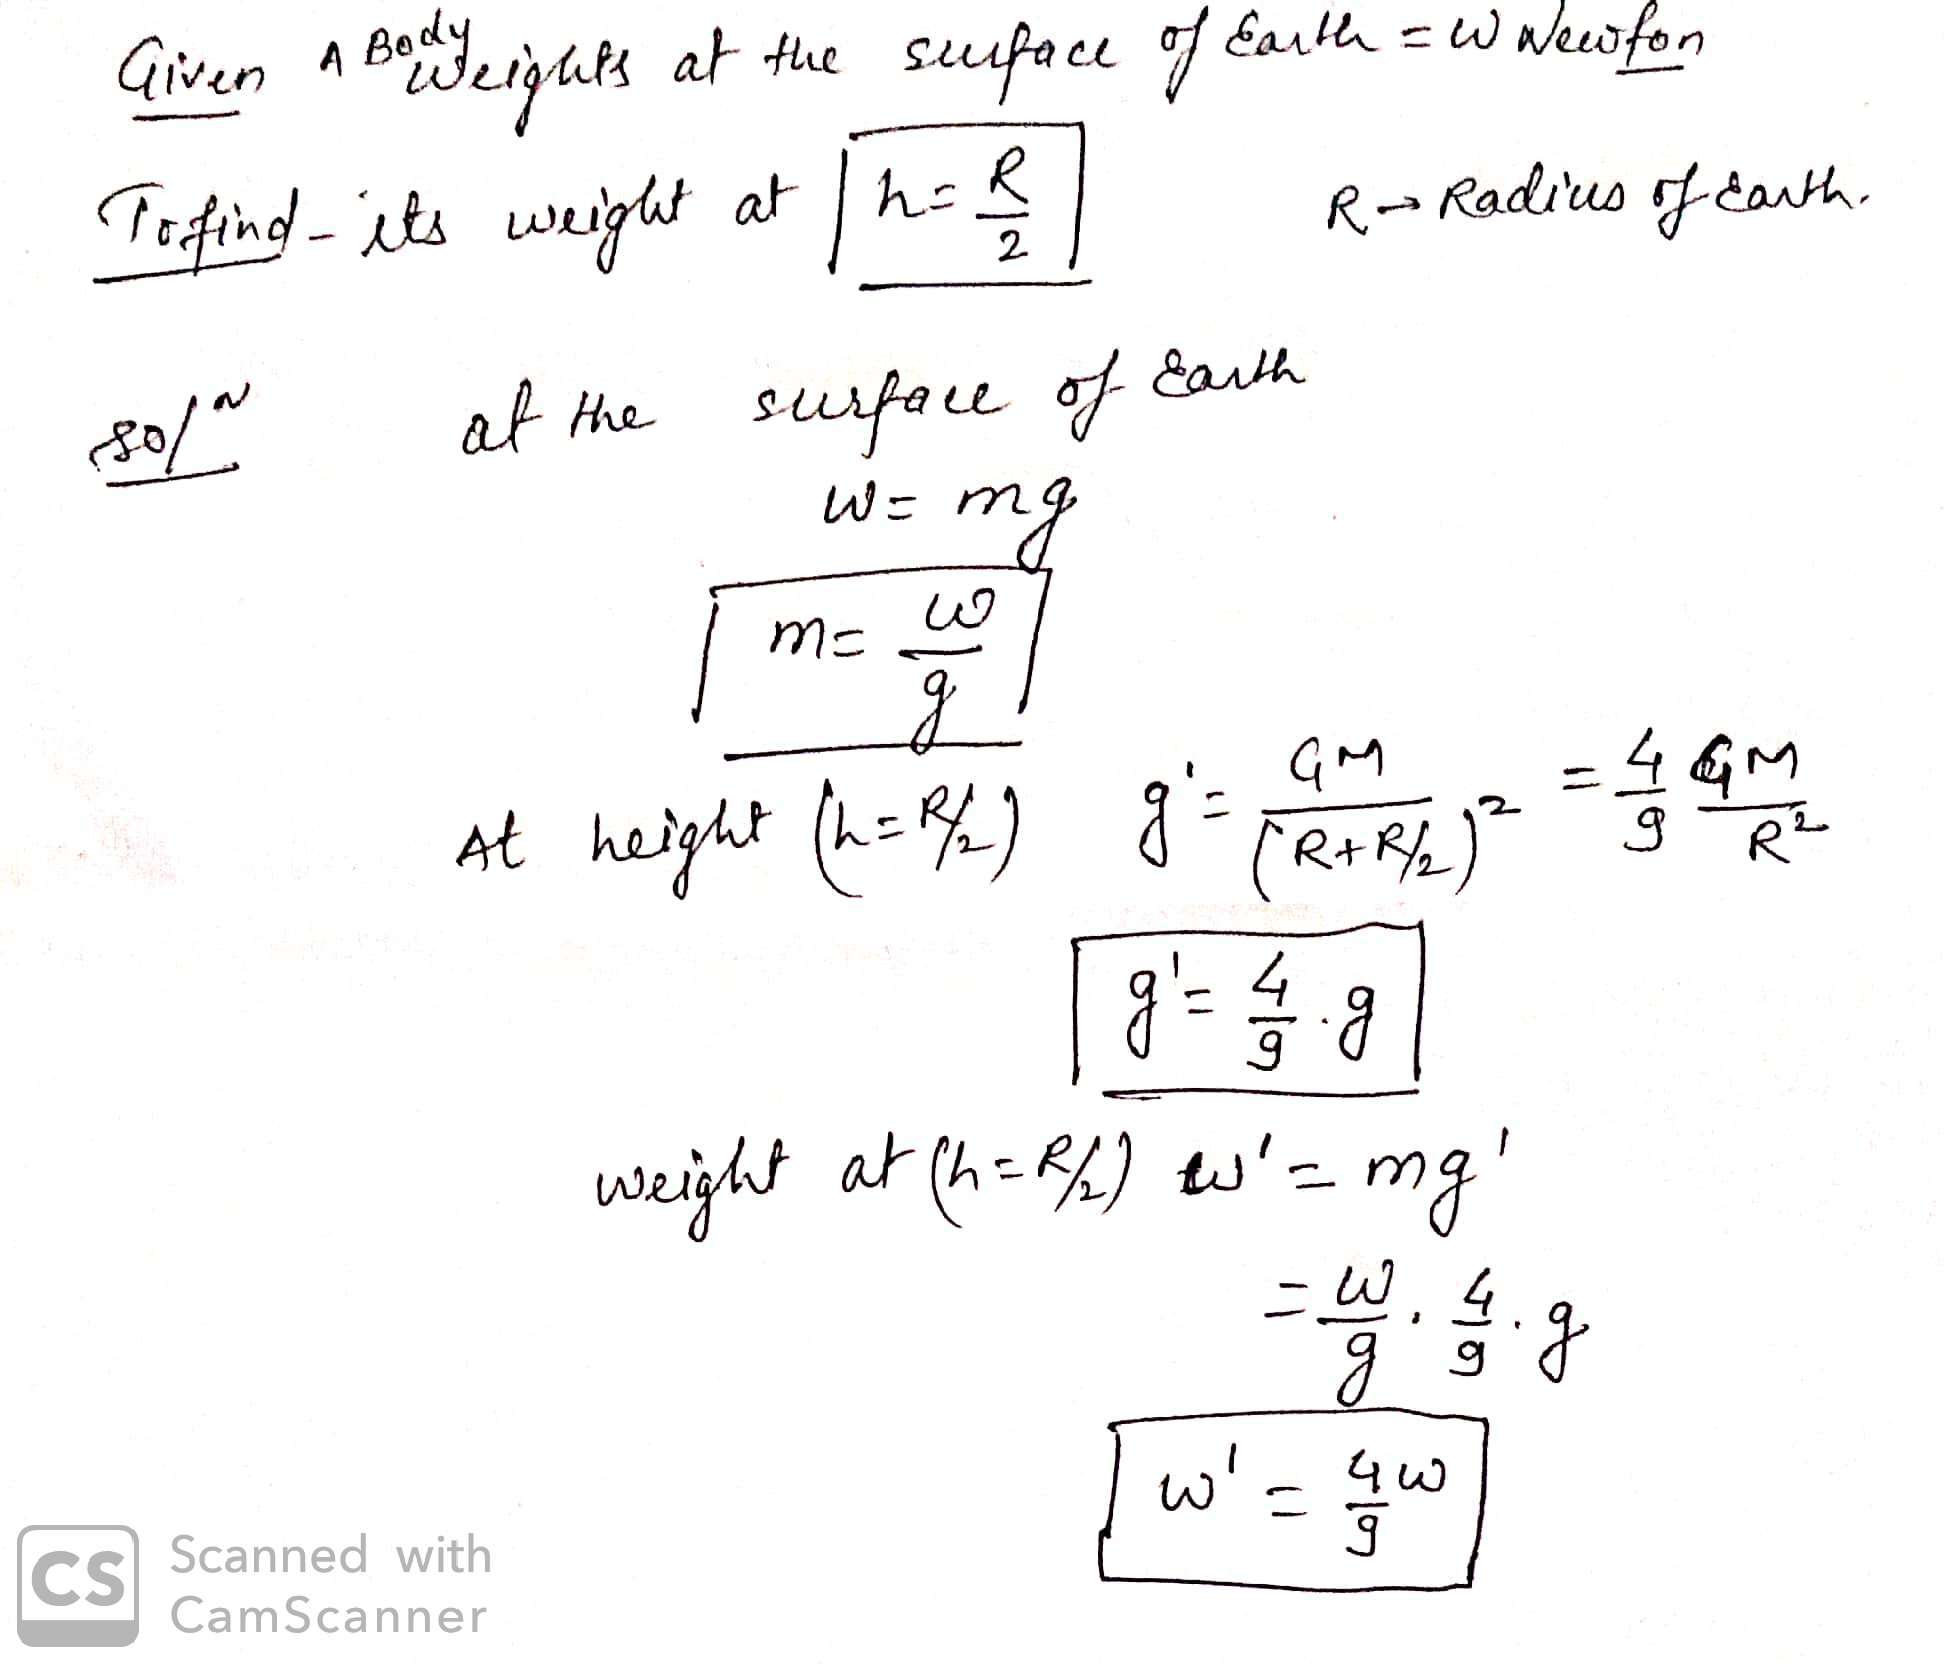 Given A Body Weights at the surface of Earth = W Newton
To find - its weight at h = R/2 R → Radius of Earth.
Solⁿ at the surface of Earth
W = mg
m = W/g
At height (h = R/2) g' = GM/(R+R/2)² = 4/9 GM/R²
g' = 4/9 . g
weight at (h = R/2) W' = mg'
= W/g . 4/9 . g
W' = 4/9 W
CS Scanned with
CamScanner